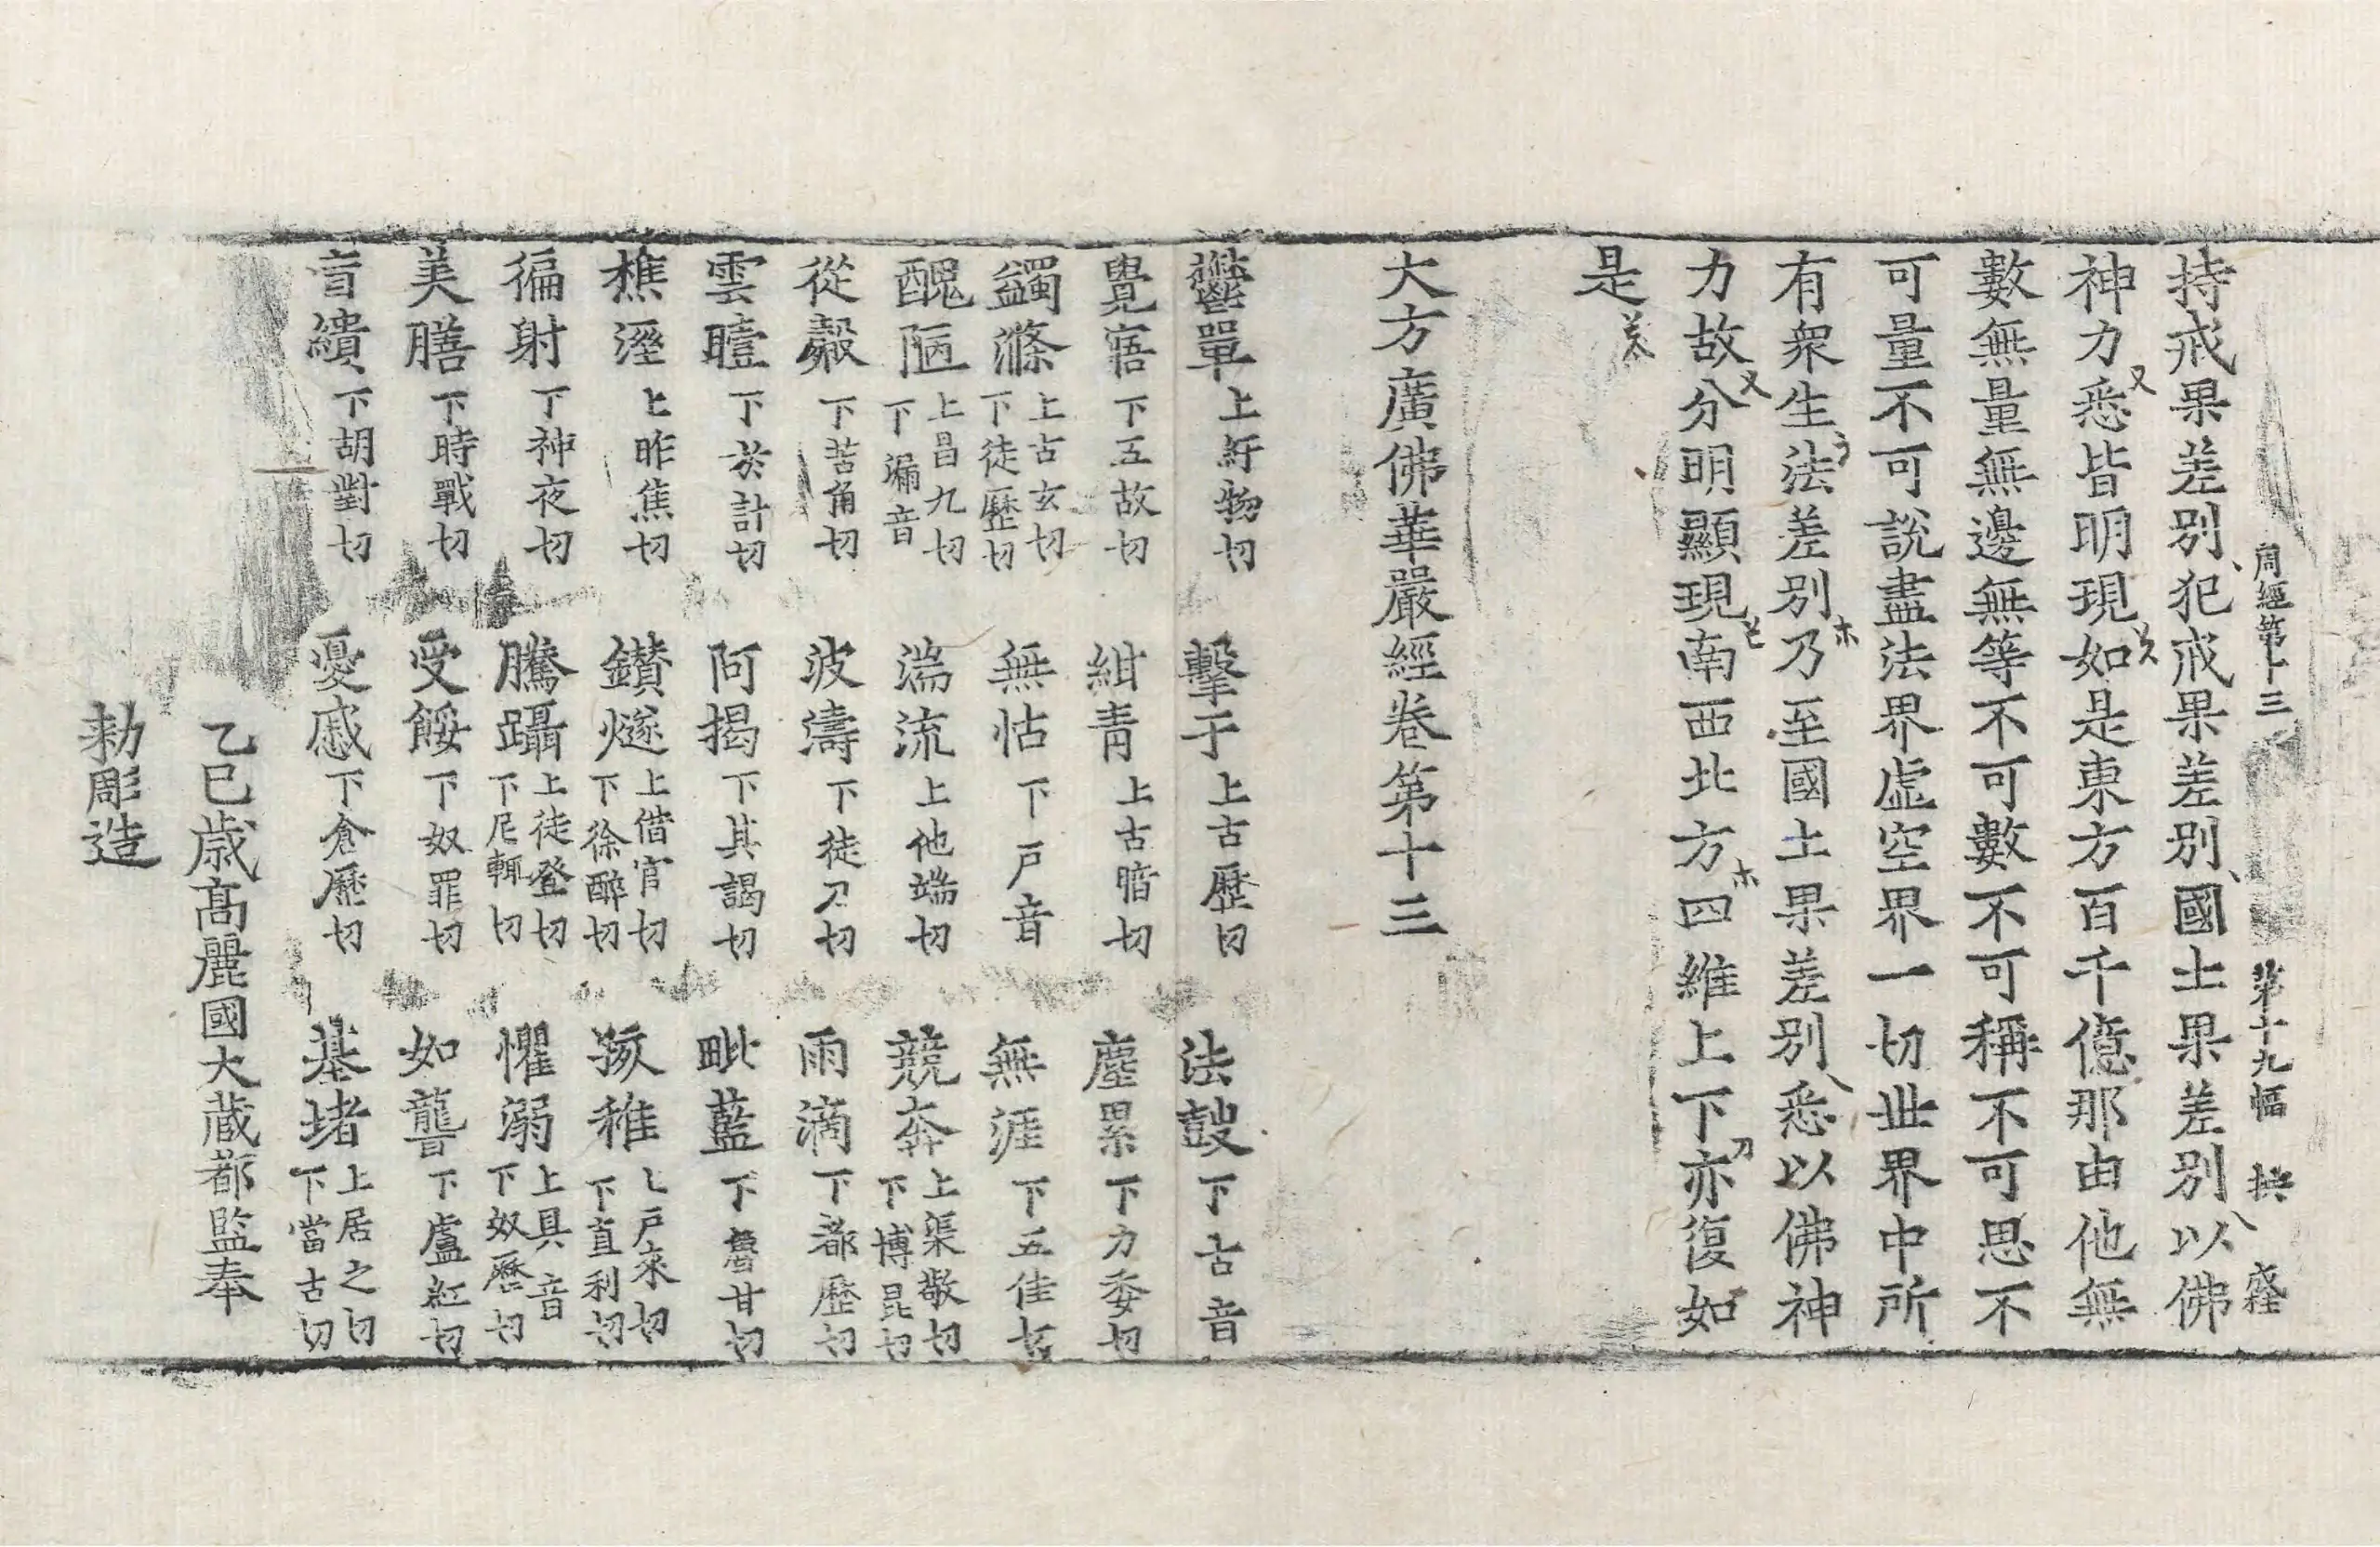 周經第十三 第十九幅 拱
持戒果差別犯戒果差別國土果差別以佛
神力悉皆明現如是東方百千億那由他無
數無量無邊無等不可數不可稱不可思不
可量不可說盡法界虛空界一切世界中所
有衆生法差別乃至國土果差別悉以佛神
力故分明顯現南西北方四維上下亦復如
是
大方廣佛華嚴經卷第十三
鬱單 上紆物切 擊于 上古歷切 法鼓 下古音
覺寤 下五故切 紺青 上古暗切 塵累 下力委切
蠲滌 上古玄切下徒歷切 無怙 下戶音 無涯 下五佳切
醜陋 上昌九切下漏音 湍流 上他端切 競奔 上渠敬切下博昆切
從㲉 下苦角切 波濤 下徒刀切 雨滴 下都歷切
雲曀 下於計切 阿揭 下其謁切 毗藍 下魯甘切
樵溼 上昨焦切 鑚燧 上借官切下徐醉切 孩稚 上戶來切下直利切
徧射 下神夜切 騰躡 上徒登切下尼輒切 懼溺 上具音下奴歷切
美膳 下時戰切 受餒 下奴罪切 如聾 下盧紅切
盲繢 下胡對切 憂慼 下倉歷切 基堵 上居之切下當古切
乙巳歲高麗國大藏都監奉
勅彫造